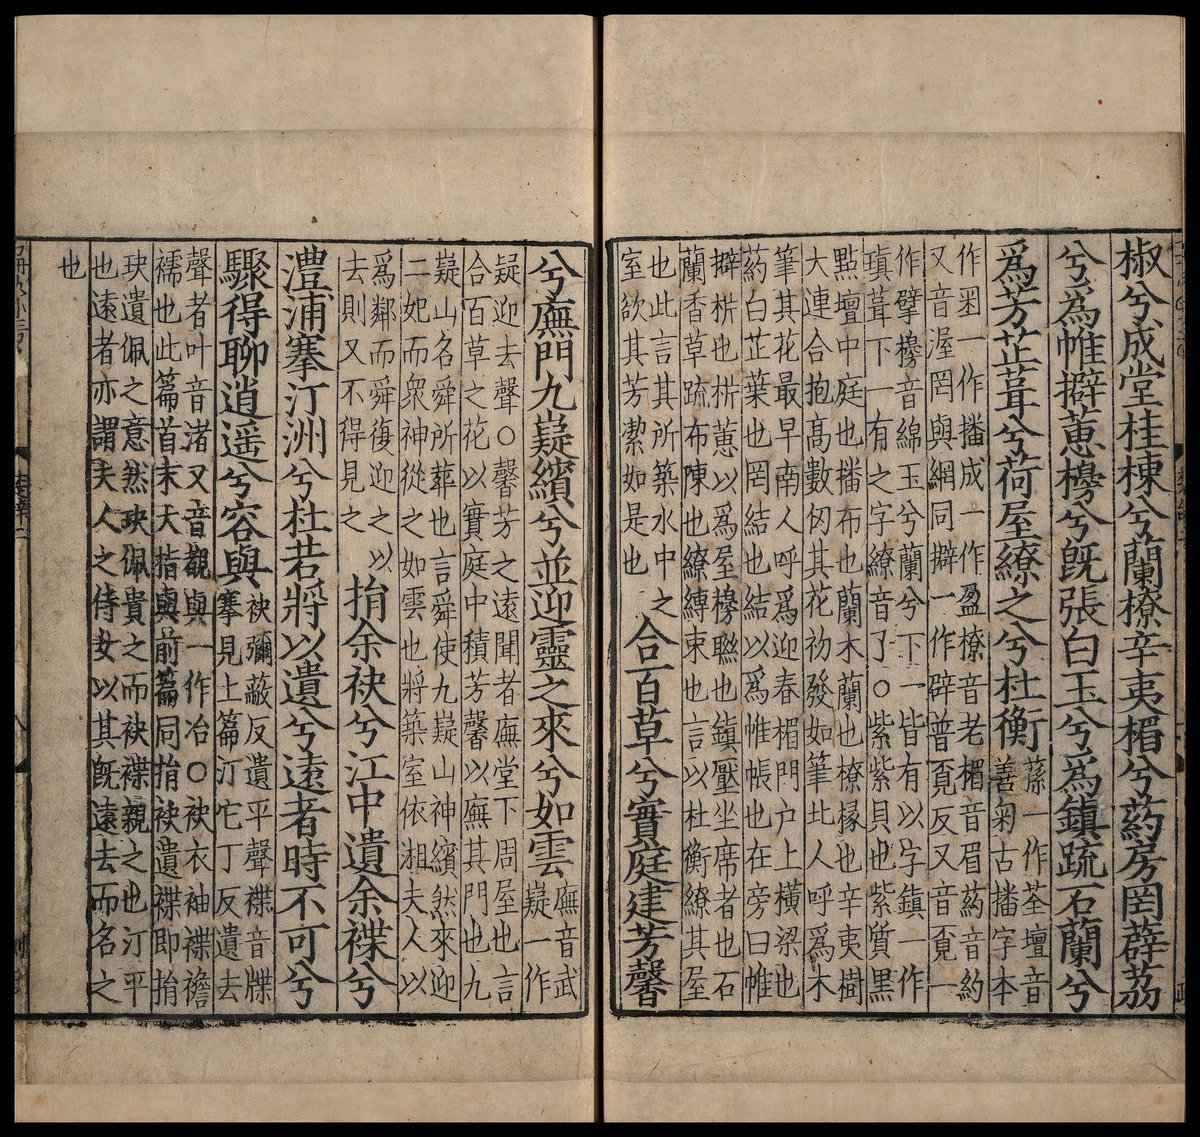 椒兮成堂桂棟兮蘭橑辛夷楣兮葯房罔薜茘
兮爲帷擗蕙櫋兮旣張白玉兮爲鎮疏石蘭兮
爲芳芷葺兮荷屋繚之兮杜衡
蓀一作荃壇音
善匊古播字本
作𡇈一作播成一作盈橑音老楣音眉葯音約
又音渥罔與網同擗一作辟普覔反又音覔一
作擘櫋音綿玉兮蘭兮下一皆有以字鎮一作
瑱葺下一有之字繚音了○紫紫貝也紫質黑
點壇中庭也播布也蘭木蘭也橑椽也辛夷樹
大連合抱高數仞其花初發如筆北人呼爲木
筆其花最早南人呼爲迎春楣門户上橫梁也
葯白芷葉也罔結也結以爲帷帳也在旁曰帷
擗枿也枿蕙以爲屋櫋聮也鎮壓坐席者也石
蘭香草疏布陳也繚縛束也言以杜衡繚其屋
也此言其所築水中之
室欲其芳潔如是也
合百草兮實庭建芳馨
兮廡門九嶷繽兮並迎靈之來兮如雲
廡音武
嶷一作
疑迎去聲○馨芳之遠聞者廡堂下周屋也言
合百草之花以實庭中積芳馨以廡其門也九
嶷山名舜所葬也言舜使九嶷山神繽然來迎
二妃而衆神從之如雲也將築室依湘夫人以
爲鄰而舜復迎之以
去則又不得見之
捐余袂兮江中遺余褋兮
澧浦搴汀洲兮杜若將以遺兮遠者時不可兮
驟得聊逍遥兮容與
袂彌蔽反遺平聲褋音牒
搴見上篇汀它丁反遺去
聲者叶音渚又音覩與一作冶○袂衣袖褋襜
襦也此篇首末大指與前篇同捐袂遺褋即捐
玦遺佩之意然玦佩貴之而袂褋親之也汀平
也遠者亦謂夫人之侍女以其旣遠去而名之
也